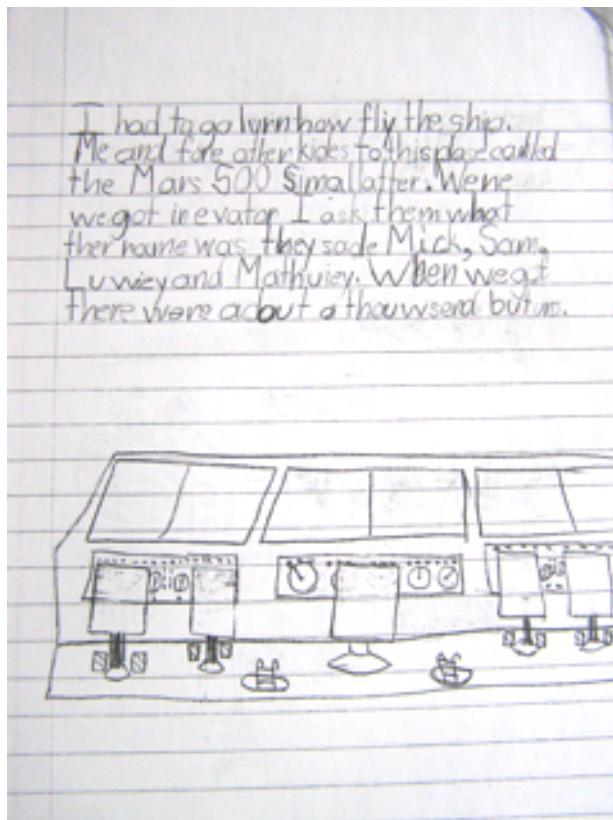 I had to go lurn how fly the ship.
Me and fore other kides to this place caulled
the Mars 500 Simallatter. Wene
we got in evator I ask them what
ther name was they sade Mick, Sam,
Luwiey and Mathuiey. When we got
there were about a thouwsend butuns.